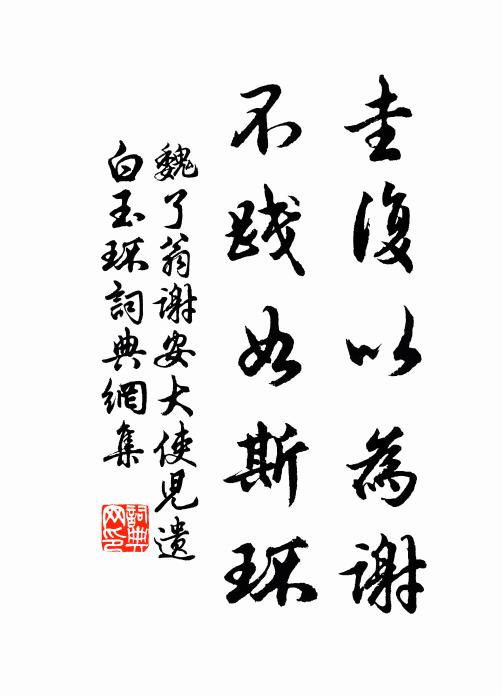 圭復以為謝
不踐如斯環
魏了翁謝安大使見遺
白玉環詞典網集
詞典
网印